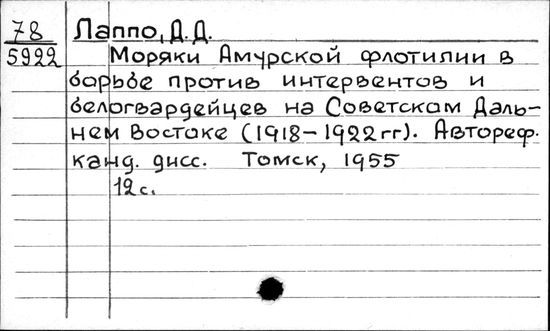 78 Лаппо, Д.Д.
5922 Моряки Амурской флотилии в
борьбе против интервентов и
белогвардейцев на Советском Даль-
нем Востоке (1918-1922 гг). Автореф.
канд. дисс. Томск, 1955
12 с.